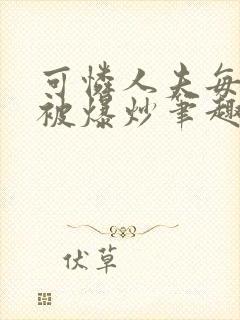 可憐人夫每
被爆炒筆趣
伏草